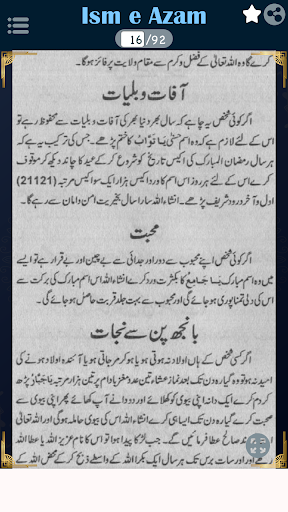 Ism e Azam
16/92
کرے گا وہ اللہ تعالیٰ کے فضل و کرم سے مقام ولایت پر فائز ہوگا۔
آفات و بلیات
اگر کوئی شخص یہ چاہے کہ سال بھر دنیا بھر کی آفات و بلیات سے محفوظ رہے تو
اس کے لئے لازم ہے کہ وہ اسم کا ختم پڑھے۔ جس کی ترکیب یہ ہے کہ
ہر سال رمضان المبارک کی اکیس تاریخ کو شروع کر کے عید کا چاند دیکھ کر موقوف
کرے اس کے لئے ہر روز اس اسم کا ورد اکیس ہزار ایک سو اکیس مرتبہ (21121)
اول و آخر درود شریف پڑھے۔ انشاء اللہ سارا سال بخیریت امن و امان سے رہے گا۔
محبت
اگر کوئی شخص اپنے محبوب سے دور اور جدائی سے بے چین اور بے قرار ہے تو ایسے
میں وہ اسم مبارک یَا جَامِعُ کا بکثرت ورد کرے انشاء اللہ اس اسم مبارک کی برکت سے
اس کی دلی تمنا پوری ہو جائے گی اور محبوب سے بہت جلد قربت حاصل ہو جائے گی۔
بانجھ پن سے نجات
اگر کسی شخص کے ہاں اولاد نہ ہوتی ہو یا ہو کر مر جاتی ہو یا آئندہ اولاد ہونے کی
امید نہ ہو تو وہ گیارہ دن تک بعد نماز عشاء تین عدد مغز بادام پر تین ہزار مرتبہ یَا جَبَّارُ پڑھ
کر دم کرے ایک دانہ اپنی بیوی کو کھلائے اور دو دانے آپ کھائے پھر اپنی بیوی سے
صحبت کرے گیارہ دن تک ایسا ہی کرے انشاء اللہ اس کی بیوی حاملہ ہو گی اور اللہ
صالح عطا فرمائیں گے۔ جب لڑکا پیدا ہو تو اس کا نام عزیز اللہ یا عطا اللہ
رکھے اور سات برس تک ہر سال ایک بکرا اللہ کے واسطے ذبح کر کے محض اللہ کے